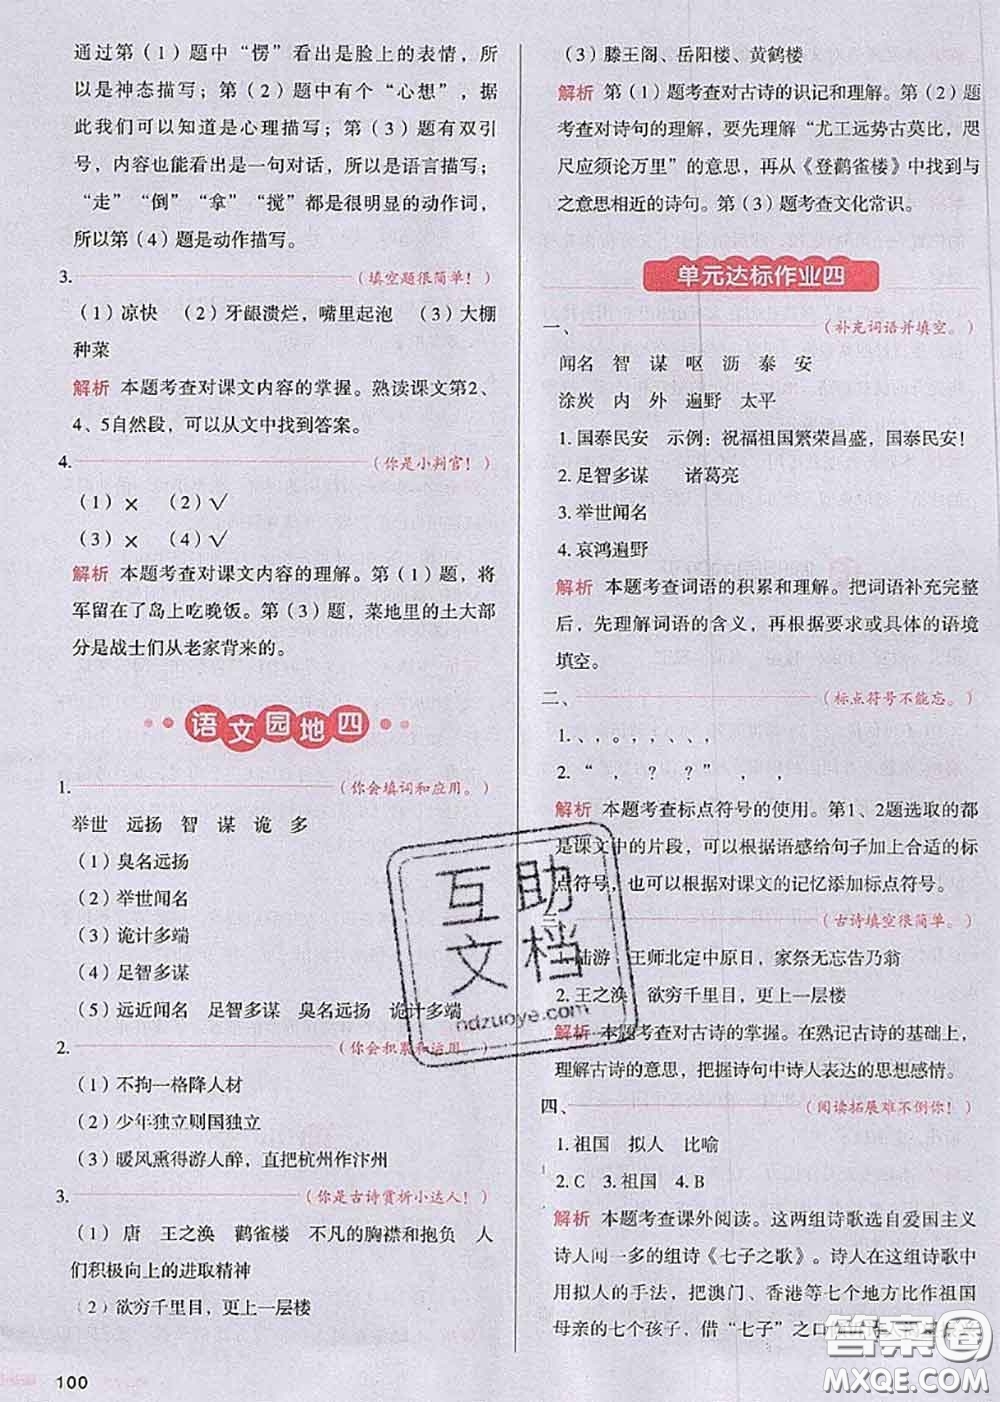 通过第（1）题中“愣”看出是脸上的表情，所
以是神态描写；第（2）题中有个“心想”，据
此我们可以知道是心理描写；第（3）题有双引
号，内容也能看出是一句对话，所以是语言描写；
“走”“倒”“拿”“搅”都是很明显的动作词，
所以第（4）题是动作描写。
3.（填空题很简单！）
（1）凉快 （2）牙龈溃烂，嘴里起泡 （3）大棚
种菜
解析 本题考查对课文内容的掌握。熟读课文第2、
4、5自然段，可以从文中找到答案。
4.（你是小判官！）
（1）× （2）√
（3）× （4）√
解析 本题考查对课文内容的理解。第（1）题，将
军留在了岛上吃晚饭。第（3）题，菜地里的土大部
分是战士们从老家背来的。
语文园地四
1.（你会填词和应用。）
举世 远扬 智 谋 诡 多
（1）臭名远扬
（2）举世闻名
（3）诡计多端
（4）足智多谋
（5）远近闻名 足智多谋 臭名远扬 诡计多端
2.（你会积累和运用。）
（1）不拘一格降人材
（2）少年独立则国独立
（3）暖风熏得游人醉，直把杭州作汴州
3.（你是古诗赏析小达人！）
（1）唐 王之涣 鹳雀楼 不凡的胸襟和抱负 人
们积极向上的进取精神
（2）欲穷千里目，更上一层楼
100
（3）滕王阁、岳阳楼、黄鹤楼
解析 第（1）题考查对古诗的识记和理解。第（2）题
考查对诗句的理解，要先理解“尤工远势古莫比，咫
尺应须论万里”的意思，再从《登鹳雀楼》中找到与
之意思相近的诗句。第（3）题考查文化常识。
单元达标作业四
一、（补充词语并填空。）
闻名 智 谋 呕 沥 泰 安
涂炭 内 外 遍野 太平
1. 国泰民安 示例：祝福祖国繁荣昌盛，国泰民安！
2. 足智多谋 诸葛亮
3. 举世闻名
4. 哀鸿遍野
解析 本题考查词语的积累和理解。把词语补充完整
后，先理解词语的含义，再根据要求或具体的语境
填空。
二、（标点符号不能忘。）
1. 、，。，、、，。
2. “ ， ？ ？ ” ， ，
解析 本题考查标点符号的使用。第1、2题选取的都
是课文中的片段，可以根据语感给句子加上合适的标
点符号，也可以根据对课文的记忆添加标点符号。
三、（古诗填空很简单。）
1. 陆游 王师北定中原日，家祭无忘告乃翁
2. 王之涣 欲穷千里目，更上一层楼
解析 本题考查对古诗的掌握。在熟记古诗的基础上，
理解古诗的意思，把握诗句中诗人表达的思想感情。
四、（阅读拓展难不倒你！）
1. 祖国 拟人 比喻
2. C 3. 祖国 4. B
解析 本题考查课外阅读。这两组诗歌选自爱国主义
诗人闻一多的组诗《七子之歌》。诗人在这组诗歌中
用拟人的手法，把澳门、香港等七个地方比作祖国
母亲的七个孩子，借“七子”之口
互助
文档
ndzuoye.com
答案圈
MXQE.COM